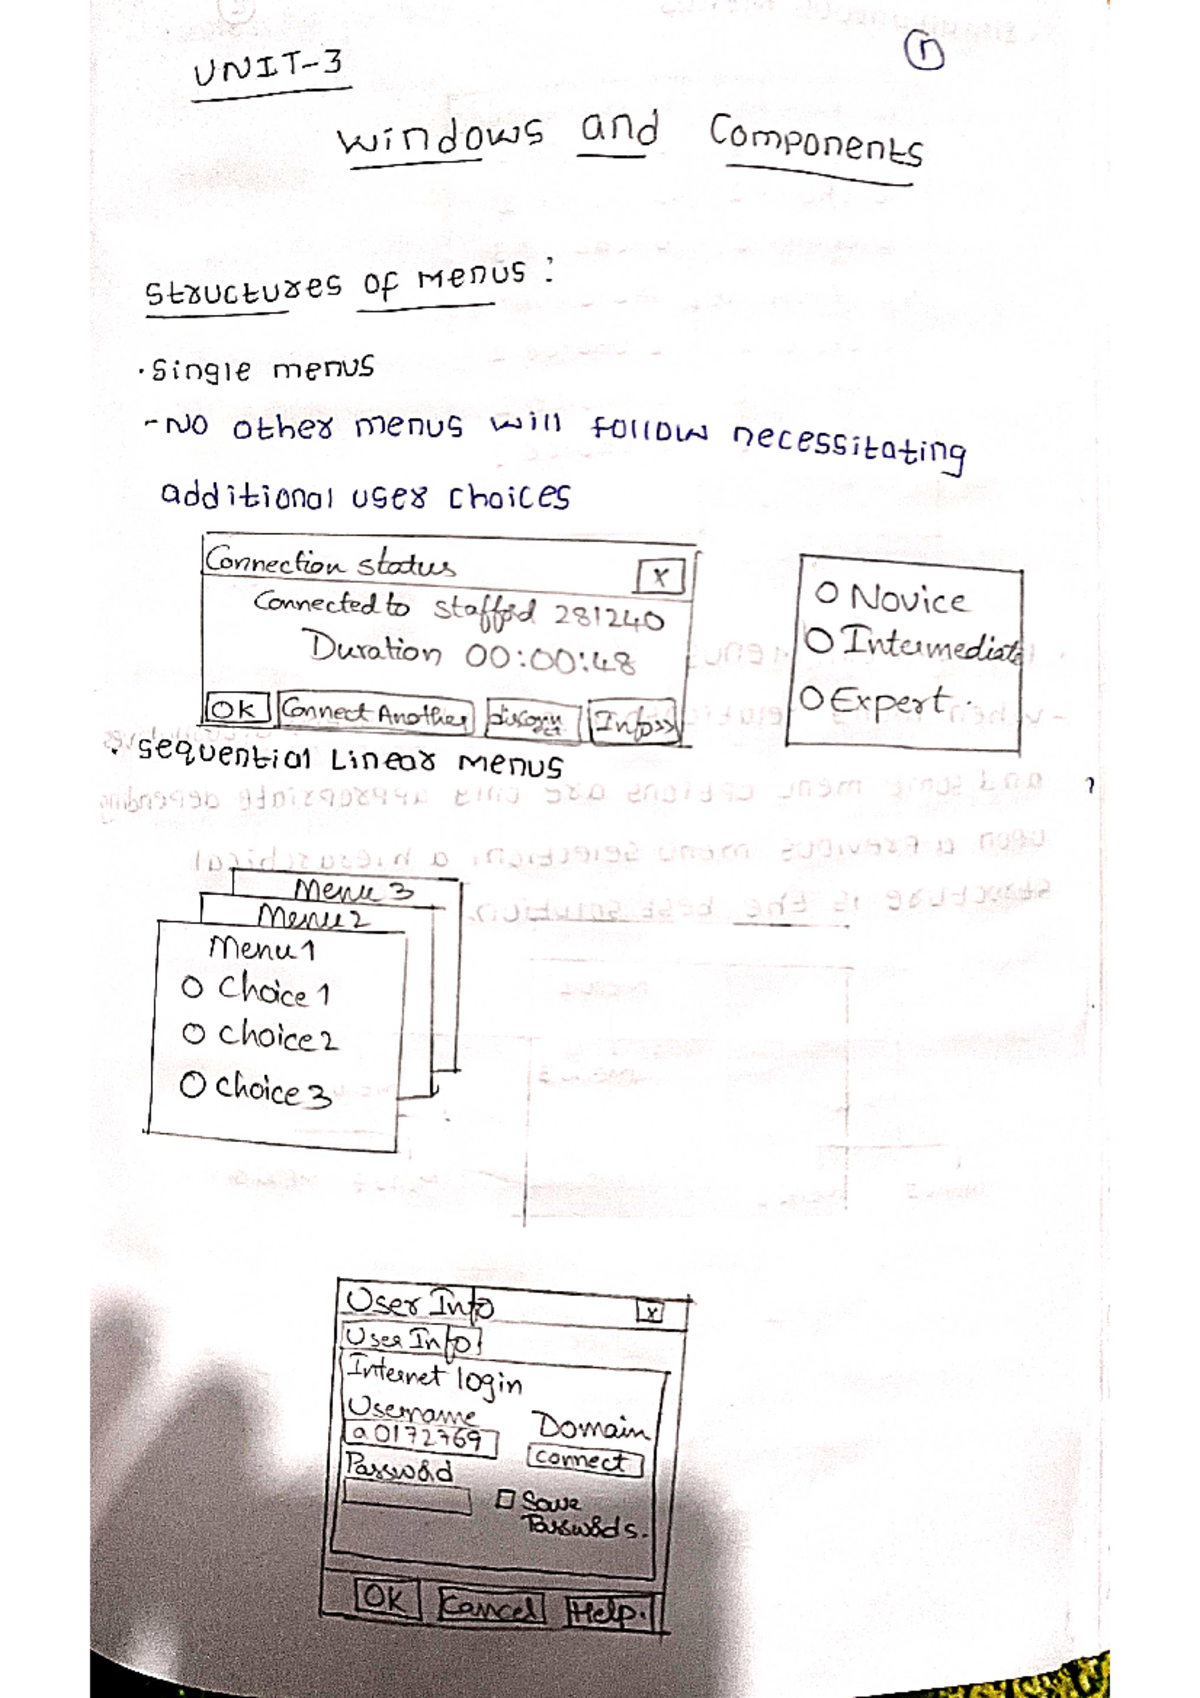 UNIT-3
Windows and Components
Structures of Menus :
· Single menus
- No other menus will follow necessitating
additional user choices
Connection status X
Connected to Stafford 281240
Duration 00:00:48
OK Connect Another disconnect Info>>
O Novice
O Intermediate
O Expert.
· Sequential Linear Menus
Menu 3
Menu 2
Menu 1
O Choice 1
O Choice 2
O Choice 3
User Info X
User Info
Internet login
Username Domain
a0172769 connect
Password
Save
Passwords.
OK Cancel Help.